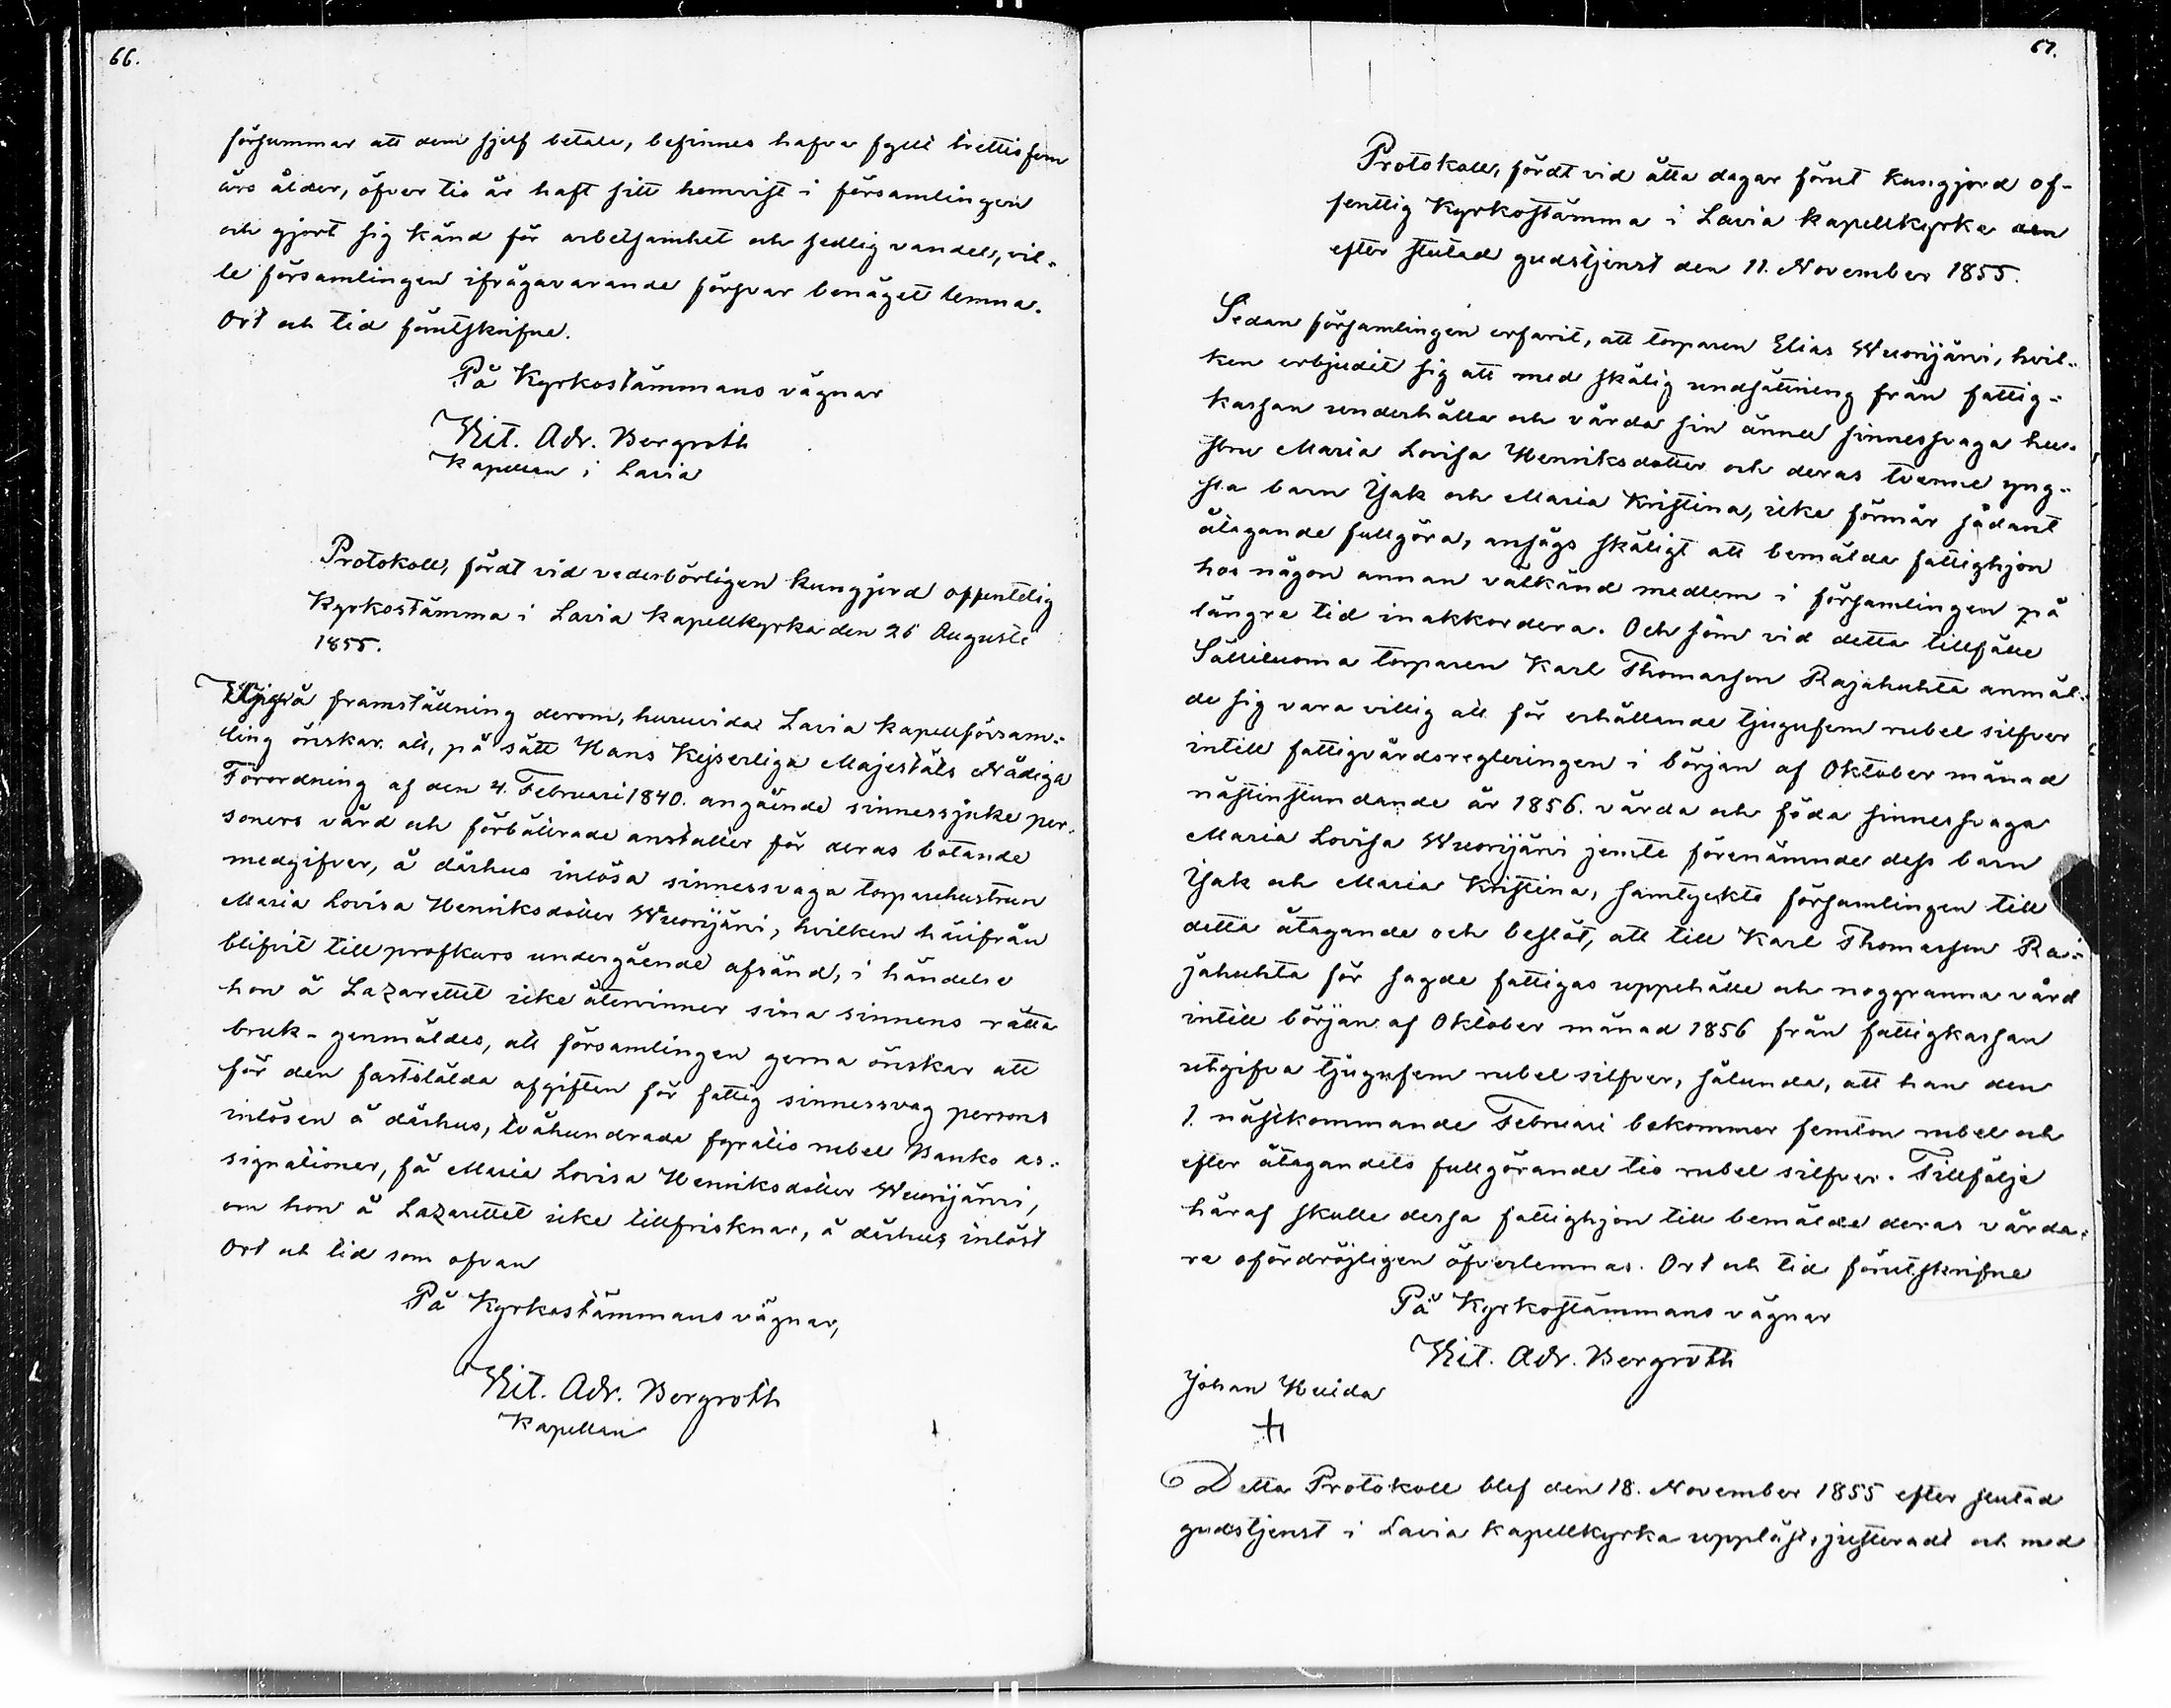 66.
försummar att dem sjelf betala, befinnes hafva fyllt trettiofem
års ålder, öfver tio år haft sitt hemvist i församlingen
och gjort sig känd för arbetsamhet och sedlig vandel, vil-
le församlingen ifrågavarande försvar benäget lemna.
Ort och tid förutskrifne.
På Kyrkostämmans vägnar
Vit. Adr. Bergroth
Kapellan i Lavia
Protokoll, fördt vid vederbörligen kungjord offentelig
Kyrkostämma i Lavia kapellkyrka den 26 Augusti
1855.
Uppå framställning derom, huruvida Lavia kapellförsam-
ling önskar att, på sätt Hans Kejserliga Majestäts Nådiga
Förordning af den 4. Februari 1840. angående sinnessjuke per-
soners vård och förbättrade anstalter för deras botande
medgifver, å dårhus inlösa sinnessvaga torparehustrun
Maria Lovisa Henriksdotter Wuorijärvi, hvilken härifrån
blifvit till profkurs undergående afsänd, i händelse
hon å Lazarettet icke återvinner sina sinnens rätta
bruk - genmäldes, att församlingen gerna önskar att
för den fastställda afgiften för fattig sinnessvag persons
inlösen å dårhus, tvåhundrade fyratio rubel Banko as-
signationer, få Maria Lovisa Henriksdotter Wuorijärvi,
om hon å Lazarettet icke tillfrisknar, å dårhus inlöst
Ort och tid som ofvan
På Kyrkostämmans vägnar,
Vit. Adr. Bergroth
Kapellan
67.
Protokoll, fördt vid åtta dagar förut kungjord of-
fentlig Kyrkostämma i Lavia kapellkyrka den
efter slutad gudstjenst den 11. November 1855.
Sedan församlingen erfarit, att torparen Elias Wuorijärvi, hvil-
ken erbjudit sig att med skälig undsättning från fattig-
kassan underhålla och vårda sin ännu sinnessvaga hu-
stru Maria Lovisa Henriksdotter och deras tvenne yng-
sta barn Isak och Maria Kristina, icke förmår sådant
åtagande fullgöra, ansågs skäligt att bemälda fattighjon
hos någon annan välkänd medlem i församlingen på
längre tid inakkordera. Och som vid detta tillfälle
Torparen Karl Thomasson Rajahuhta anmäl-
de sig vara villig att för erhållande tjugufem rubel silfver
intill fattigvårdsregleringen i början af Oktober månad
nästinstundande år 1856. vårda och föda sinnessvaga
Maria Lovisa Wuorijärvi jemte förenämnde dess barn
Isak och Maria Kristina, samtyckte församlingen till
detta åtagande och beslöt, att till Karl Thomasson Ra-
jahuhta för sagde fattigas uppehälle och noggranna vård
intill början af Oktober månad 1856 från fattigkassan
utgifva tjugufem rubel silfver, sålunda, att han den
1. nästkommande Februari bekommer femton rubel och
efter åtagandets fullgörande tio rubel silfver. Tillfölje
häraf skulle dessa fattighjon till bemälde deras vårda-
re ofördröjligen öfverlemnas. Ort och tid förutskrifne
På Kyrkostämmans vägnar
Vit. Adr. Bergroth
Johan Huida
Detta Protokoll blef den 18. November 1855 efter slutad
gudstjenst i Lavia kapellkyrka uppläst, justeradt och med